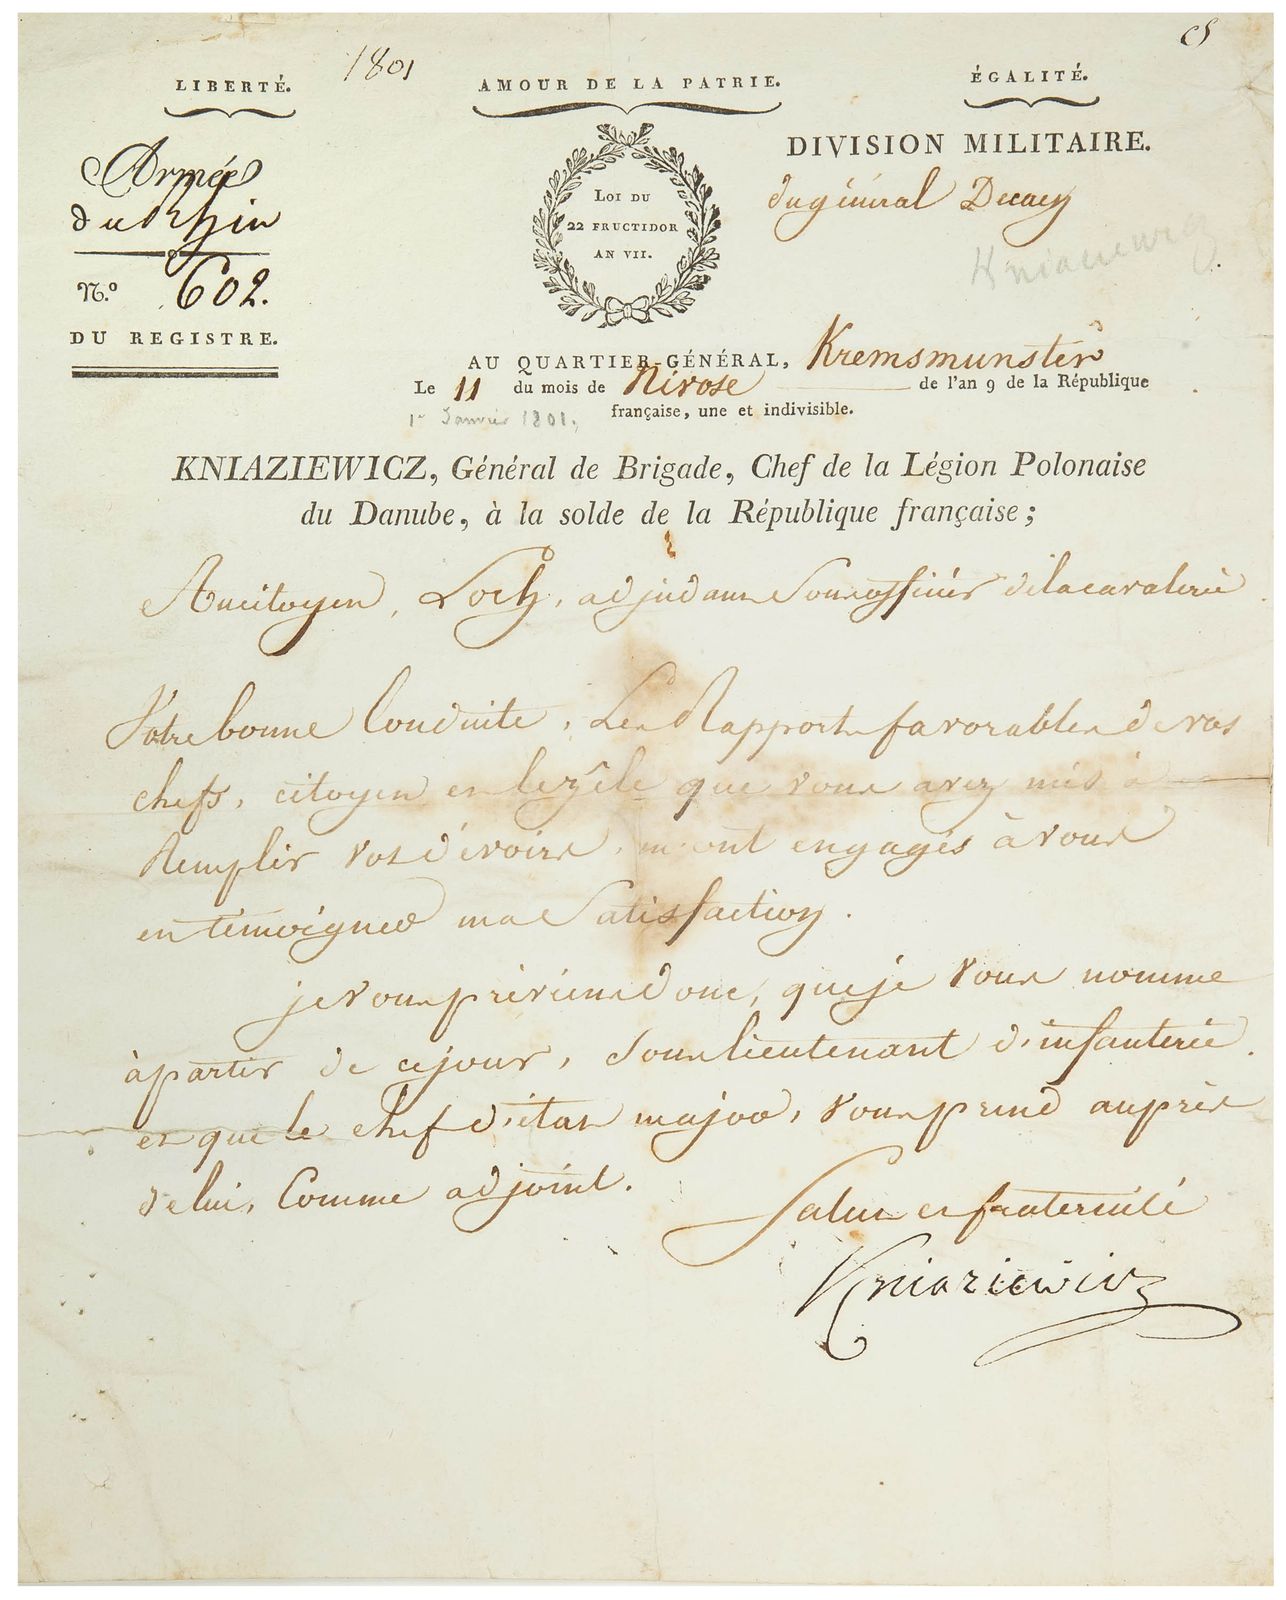 1801
cs
LIBERTÉ.
AMOUR DE LA PATRIE.
ÉGALITÉ.
Armée
du Rhin
N.º 602.
DU REGISTRE.
LOI DU
22 FRUCTIDOR
AN VII.
DIVISION MILITAIRE.
du général Decaen
Kniaziewicz
AU QUARTIER-GÉNÉRAL, Kremsmunster
Le 11 du mois de Nivose de l'an 9 de la République
1er Janvier 1801.
française, une et indivisible.
KNIAZIEWICZ, Général de Brigade, Chef de la Légion Polonaise
du Danube, à la solde de la République française ;
Au citoyen, Loch, adjudant Sous officier de la cavalerie
Votre bonne Conduite, Les Rapports favorables de vos
chefs, citoyen et le zêle que vous avez mis à
Remplir vos dévoirs, m'ont engagés à vous
en témoigner ma Satisfaction.
je vous préviens donc, que je vous nomme
à partir de ce jour, Sous lieutenant d'infanterie.
et que le chef d'état major, vous prend auprès
de lui, Comme adjoint.
Salut et fraternité
Kniaziewicz